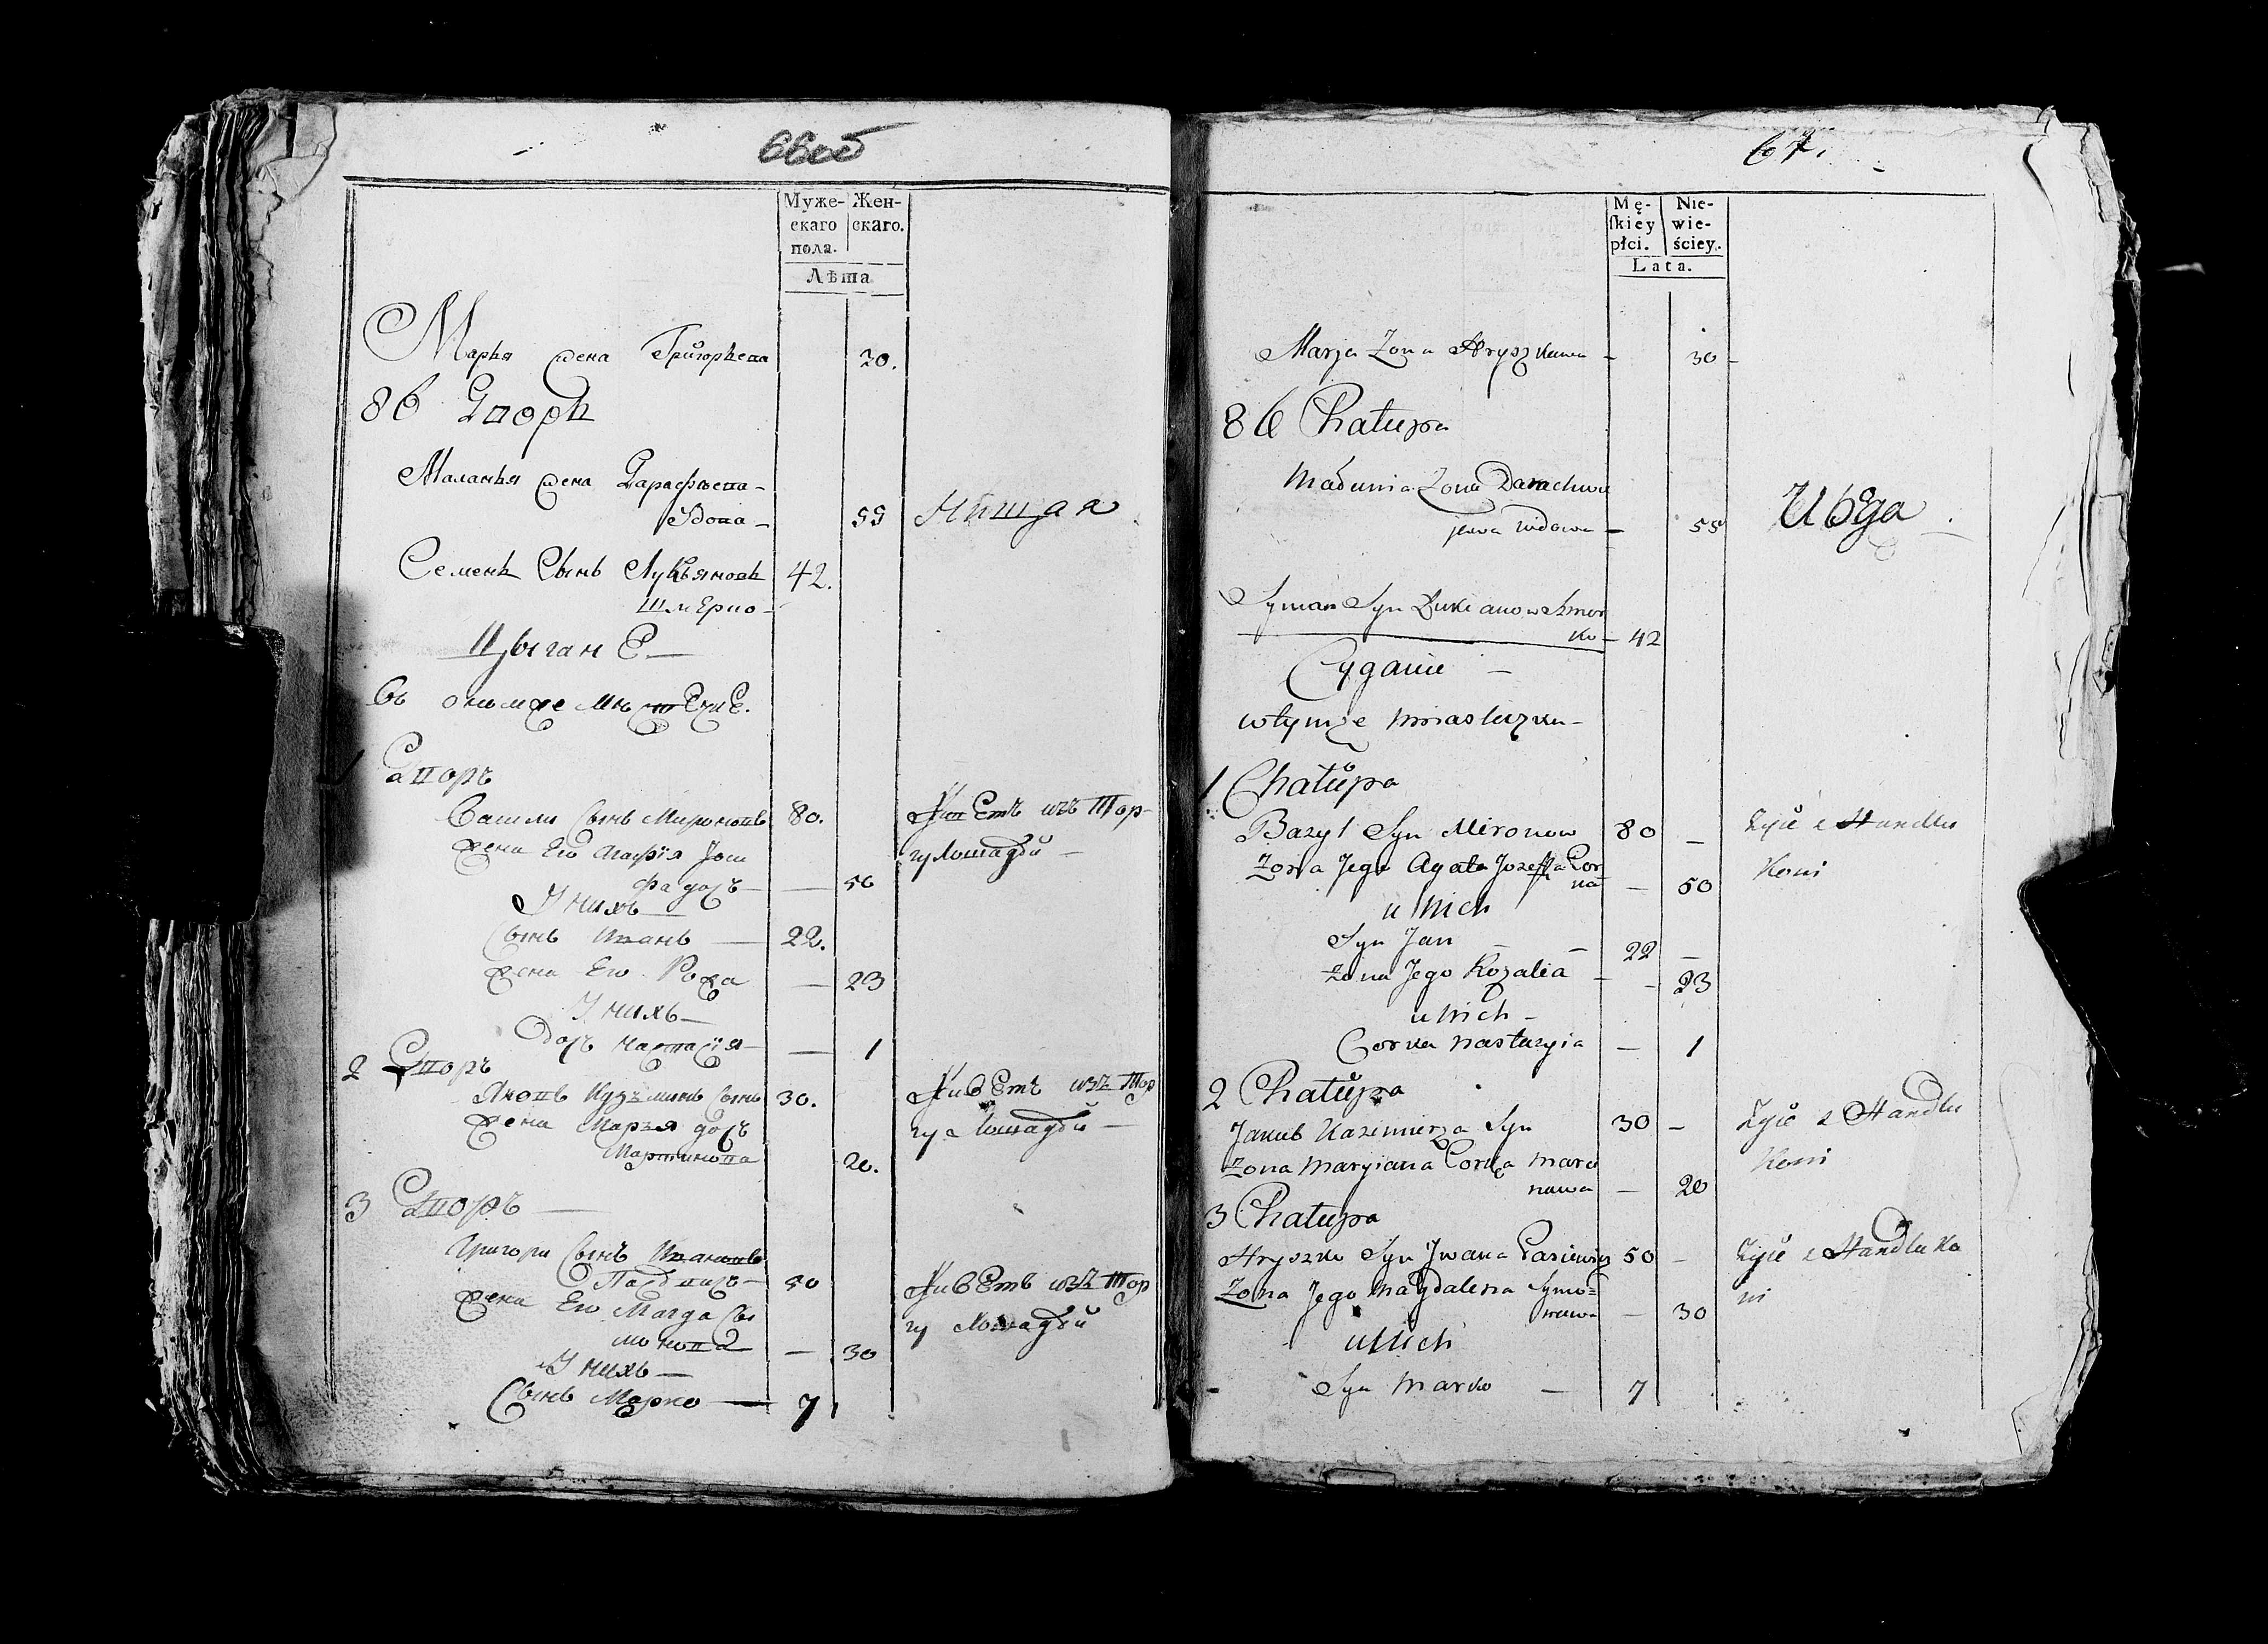 66об
Муже-
скаго
пола.
Жен-
скаго.
Лѣта
Марья жена Григорьева 20.
86 Дворъ
Маланья жена Дарафѣева-
Вдова - 55 Нищая
Семенъ Сынъ Лукьяновъ 42.
Шмерко
Цыганѣ
Въ ономже мѣстечкѣ.
Дворъ
Васили Сынъ Мироновъ 80. Живетъ изъ Тор-
жена Его АгафияJози гу Лошадьй -
фа дочъ — 50
У нихъ —
Сынъ Иванъ — 22.
жена Его Рожа — 23
У нихъ —
Дочъ Настасія — 1
2 Дворъ
Яковъ Кузьминъ Сынъ 30. Живетъ изъ Тор
жена Марья дочъ гу Лошадьй —
Мартинова 20.
3 Дворъ —
Григори Сынъ Ивановъ
50 Живетъ изъ Тор
жена Его Магда Си гу Лошадьй
монова — 30
У нихъ —
Сынъ Марко — 7
67.
Mę-
ſkiey
płci.
Nie-
wie-
ściey.
Lata.
Marja Zona Hryszkowa - 30 -
86 Chałupa
Zona Darachwie
jewa wdowa - 55 Uboga
Syman Syn Łukianow Szmer
ko - 42
Cyganie -
w tymże Miasteczku -
1 Chałupa
Bazyl Syn Mironow 80 - Żyie z Handlu
Zona Jego Agata Jozeffa Cor Koni
na - 50
u Nich
Syn Jan - - 22 -
Zona Jego Rozalia - - 23
u Nich -
Corka Nastazyia - 1
2 Chałupa
Jakub Kazimierza Syn 30 - Żyie z Handlu
Zona Maryiana Corka Marci Koni
nowa - 20
3 Chałupa
Hryszko Syn Jwana Pasiewicz 50 - Żyie z Handlu Ko
Zona Jego Magdalena Symo= ni
nowa - 30
u Nich
Syn Marko — 7